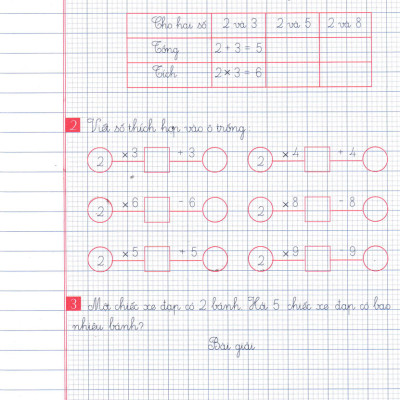 Cho hai số 2 và 3 2 và 5 2 và 8
Tổng 2 + 3 = 5
Tích 2 × 3 = 6
2. Viết số thích hợp vào ô trống
2 × 3 + 3 2 × 4 + 4
2 × 6 - 6 2 × 8 - 8
2 × 5 + 5 2 × 9 - 9
3. Một chiếc xe đạp có 2 bánh. Hỏi 5 chiếc xe đạp có bao
nhiêu bánh?
Bài giải